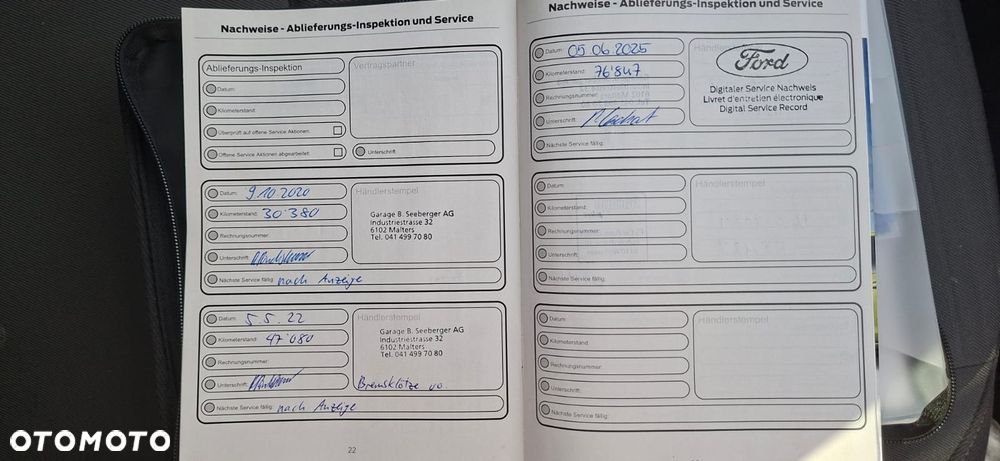 Nachweise - Ablieferungs-Inspektion und Service
Ablieferungs-Inspektion
Vertragspartner
Datum:
Kilometerstand:
Rechnungsnummer:
Überprüft auf offene Service Aktionen:
Offene Service Aktionen abgearbeitet:
Unterschrift:
Datum: 9.10.2020
Händlerstempel
Kilometerstand: 30'380
Garage B. Seeberger AG
Industriestrasse 32
6102 Malters
Tel. 041 499 70 80
Rechnungsnummer:
Unterschrift:
Nächste Service fällig: nach Anzeige
Datum: 5.5.22
Händlerstempel
Kilometerstand: 47'080
Garage B. Seeberger AG
Industriestrasse 32
6102 Malters
Tel. 041 499 70 80
Rechnungsnummer:
Unterschrift:
Bremsklötze vo.
Nächste Service fällig: nach Anzeige
22
Nachweise - Ablieferungs-Inspektion und Service
Datum: 05.06.2025
Kilometerstand: 76'847
Rechnungsnummer:
Unterschrift:
Ford
Digitaler Service Nachweis
Livret d'entretien électronique
Digital Service Record
Nächste Service fällig:
Datum:
Händlerstempel
Kilometerstand:
Rechnungsnummer:
Unterschrift:
Nächste Service fällig:
Datum:
Händlerstempel
Kilometerstand:
Rechnungsnummer:
Unterschrift:
Nächste Service fällig:
OTOMOTO